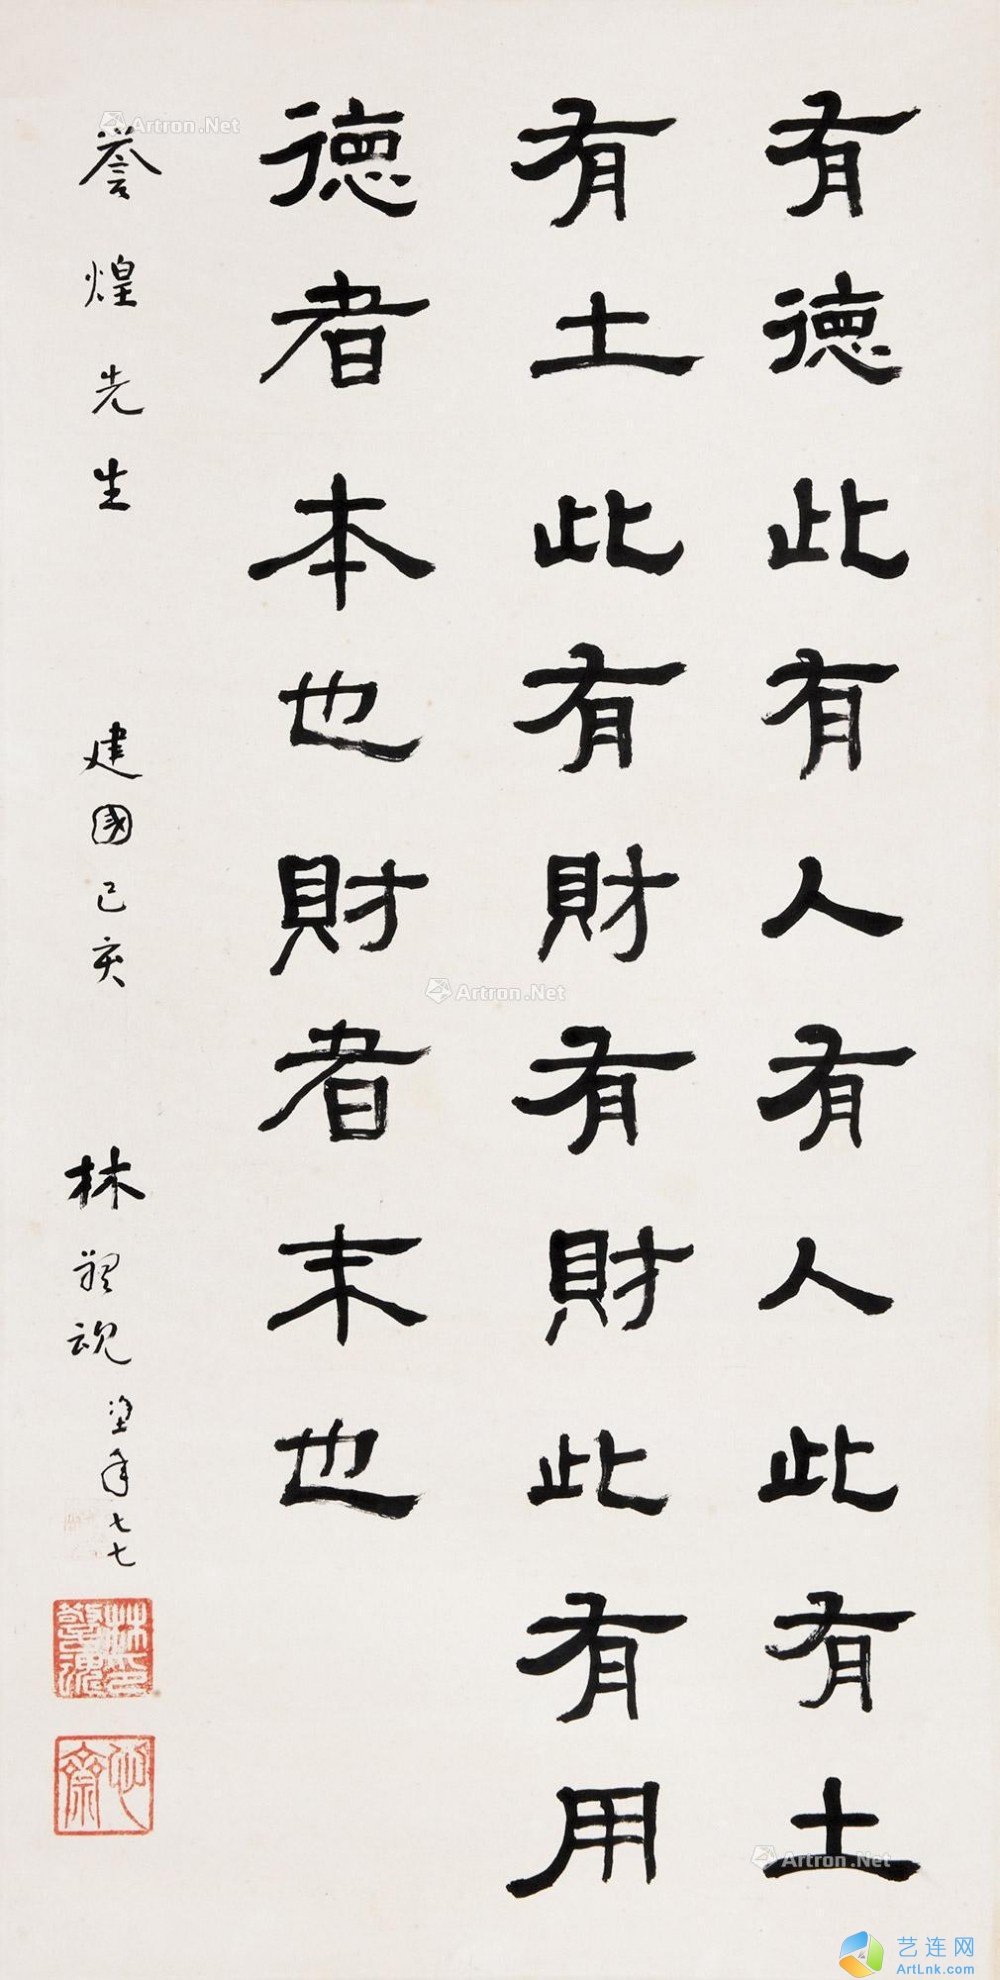 有德此有人有人此有土
有土此有財有財此有用
德者本也財者末也
譽煌先生 建國己亥 林警魂 塗年七七
林警魂印
Artron.Net
Artron.Net
Artron.Net
艺连网
ArtLnk.com